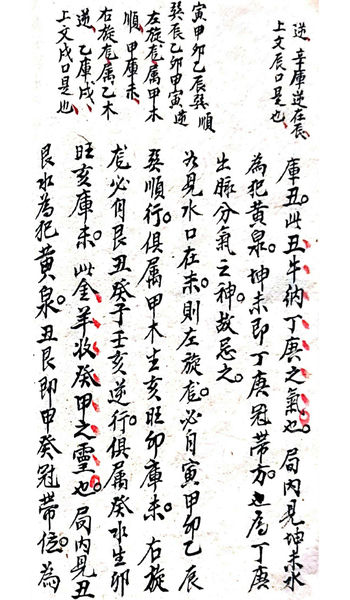 逆、辛庫逆在辰、
上文辰口是也、
寅甲卯乙辰巽順
巽辰乙卯甲寅逆
左旋龙属甲木
順、甲庫未、
右旋龙属乙木
逆、乙庫戌、
上文戌口是也、
庫丑。此丑牛納丁庚之氣也。局内見坤未水
為犯黃泉。坤未即丁庚冠帶方。也為丁庚
出脉分氣之神。故忌之。
見水口在未。則左旋龙。必自寅甲卯乙辰
巽順行。俱属甲木生亥旺卯庫未。右旋
龙必自艮丑癸子壬亥逆行。俱属癸水生卯
旺亥庫未。此金羊收癸甲之靈也。局内見丑
艮水為犯黃泉。丑艮即甲癸冠帶位。為